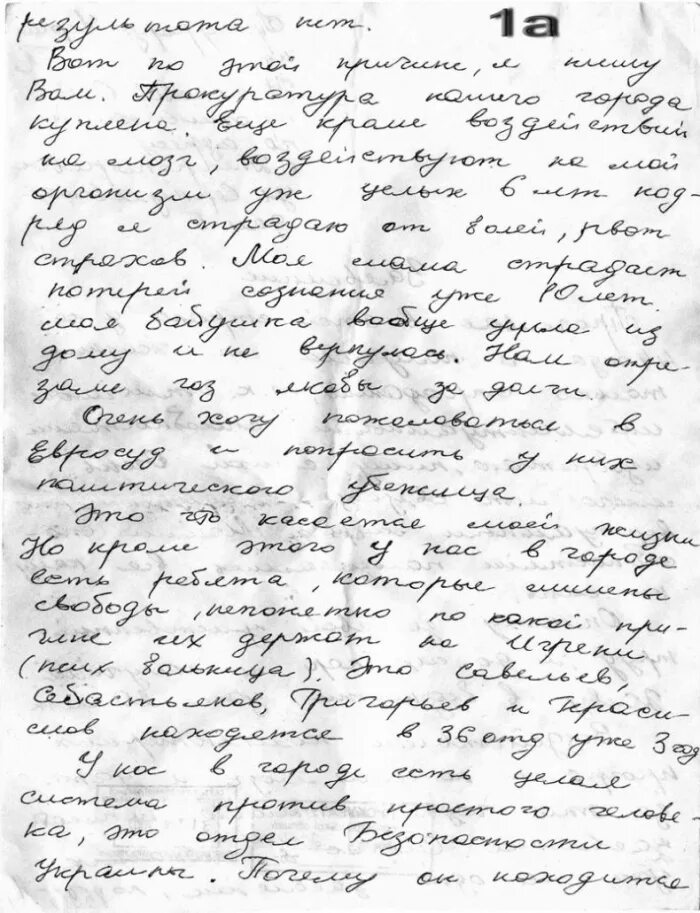 результата нет.
1a
Вот по этой причине, я пишу
Вам. Прокуратура нашего города
куплена. Еще кроме воздействий
на мозг, воздействуют на мой
организм уж целых 6 лет под-
ряд я страдаю от болей, рвот
страхов. Моя мама страдает
потерей сознания уже 10 лет.
моя бабушка вообще ушла из
дому и не вернулась. Нам отре-
зали газ якобы за долги.
Очень хочу пожаловаться в
Евросуд и попросить у них
политического убежища.
Это что касается моей жизни
Но кроме этого у нас в городе
есть ребята, которые лишены
свободы, непонятно по какой при-
чине их держат на Игрени
(псих больница). Это Савельев,
Себастьянов, Григорьев и Гераси-
мов находятся в 36 отд уже 3 год
У нас в городе есть целая
система против простого челове-
ка, это отдел Безопасности
Украины. Почему он находится